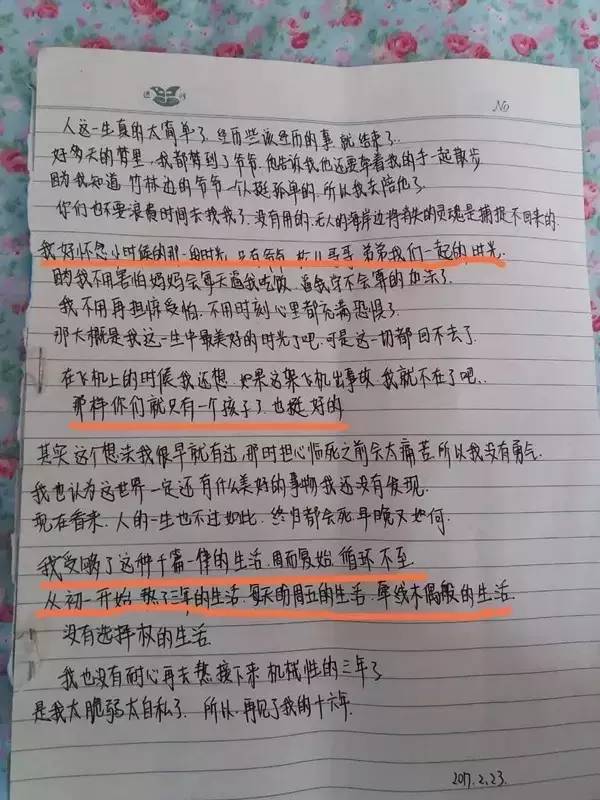 No
人这一生真的太简单了，经历些该经历的事，就结束了..
好多天的梦里，我都梦到了爷爷，他告诉我他还要牵着我的手一起散步
因为我知道，竹林边的爷爷一个人挺孤单的，所以我去陪他了.
你们也不要浪费时间去找我了，没有用的，无人的海岸边将消失的灵魂是捕捉不回来的.
我好怀念小时候的那一段时光，只有爷爷 哥哥 弟弟我们一起的时光
因为我不用害怕妈妈会每天逼我吃饭，逼我穿不会穿的
我不用再担惊受怕，不用时刻心里都充满恐惧了.
那大概是我这一生中最美好的时光了吧，可是这一切都回不去了.
在飞机上的时候我还想，如果这架飞机出事故，我就不在了吧..
那样你们就只有一个孩子了，也挺好的
其实这个想法我很早就有过，那时担心临死之前会太痛苦，所以我没有勇气.
我也认为这世界一定还有什么美好的事物我还没有发现.
现在看来，人的一生也不过如此，终归都会死，早晚又如何.
我受够了这种千篇一律的生活，周而复始，循环不至.
从初一开始，熬了三年的生活，每天盼周五的生活，牵线木偶般的生活.
没有选择权的生活.
我也没有耐心再去熬接下来机械性的三年了
是我太脆弱太自私了，所以，再见了我的十六年.
2017.2.23.